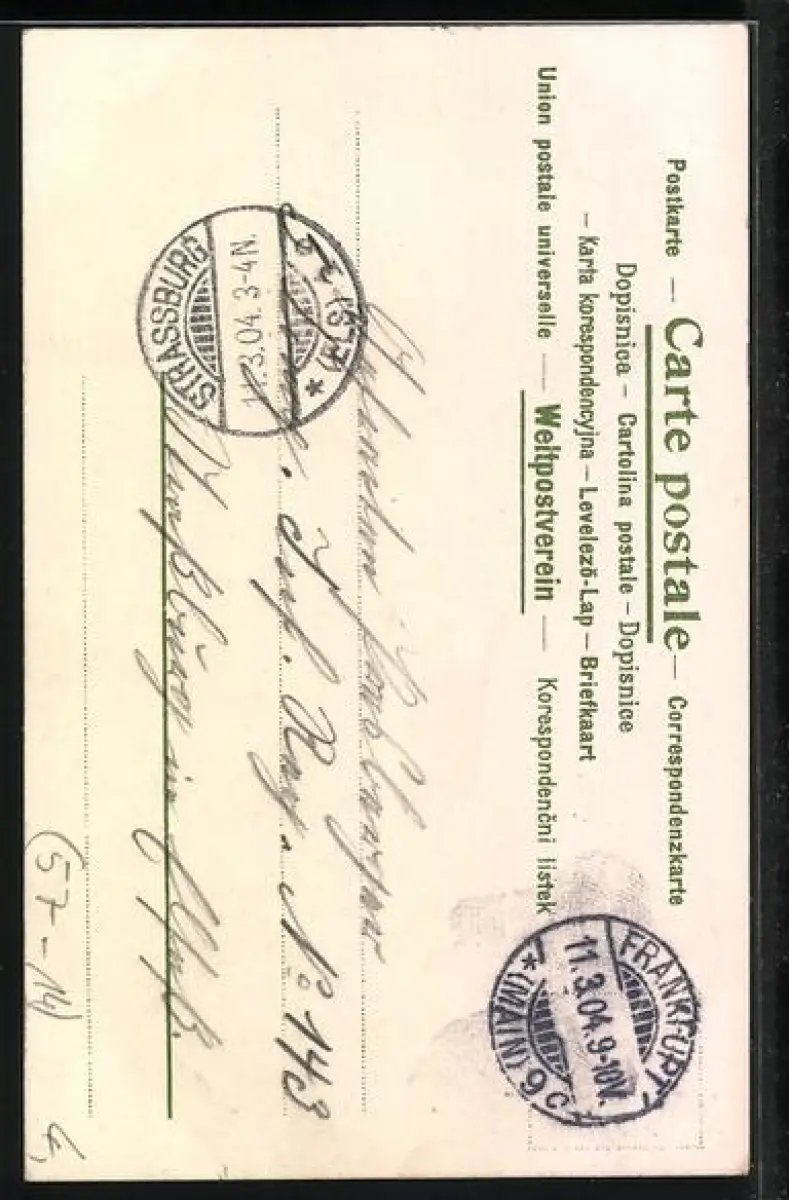 Postkarte — Carte postale — Correspondenzkarte
Dopisnica – Cartolina postale – Dopisnice
– Karta korespondencyjna – Levelező-Lap – Briefkaart
Union postale universelle — Weltpostverein — Korespondenční listek
FRANKFURT
11.3.04.9-10V.
* (MAIN) 9 c
STRASSBURG
11.3.04. 3-4N.
(ELS.) *
Inf. Reg. No 143
Straßburg im Elsaß.
(57-14)